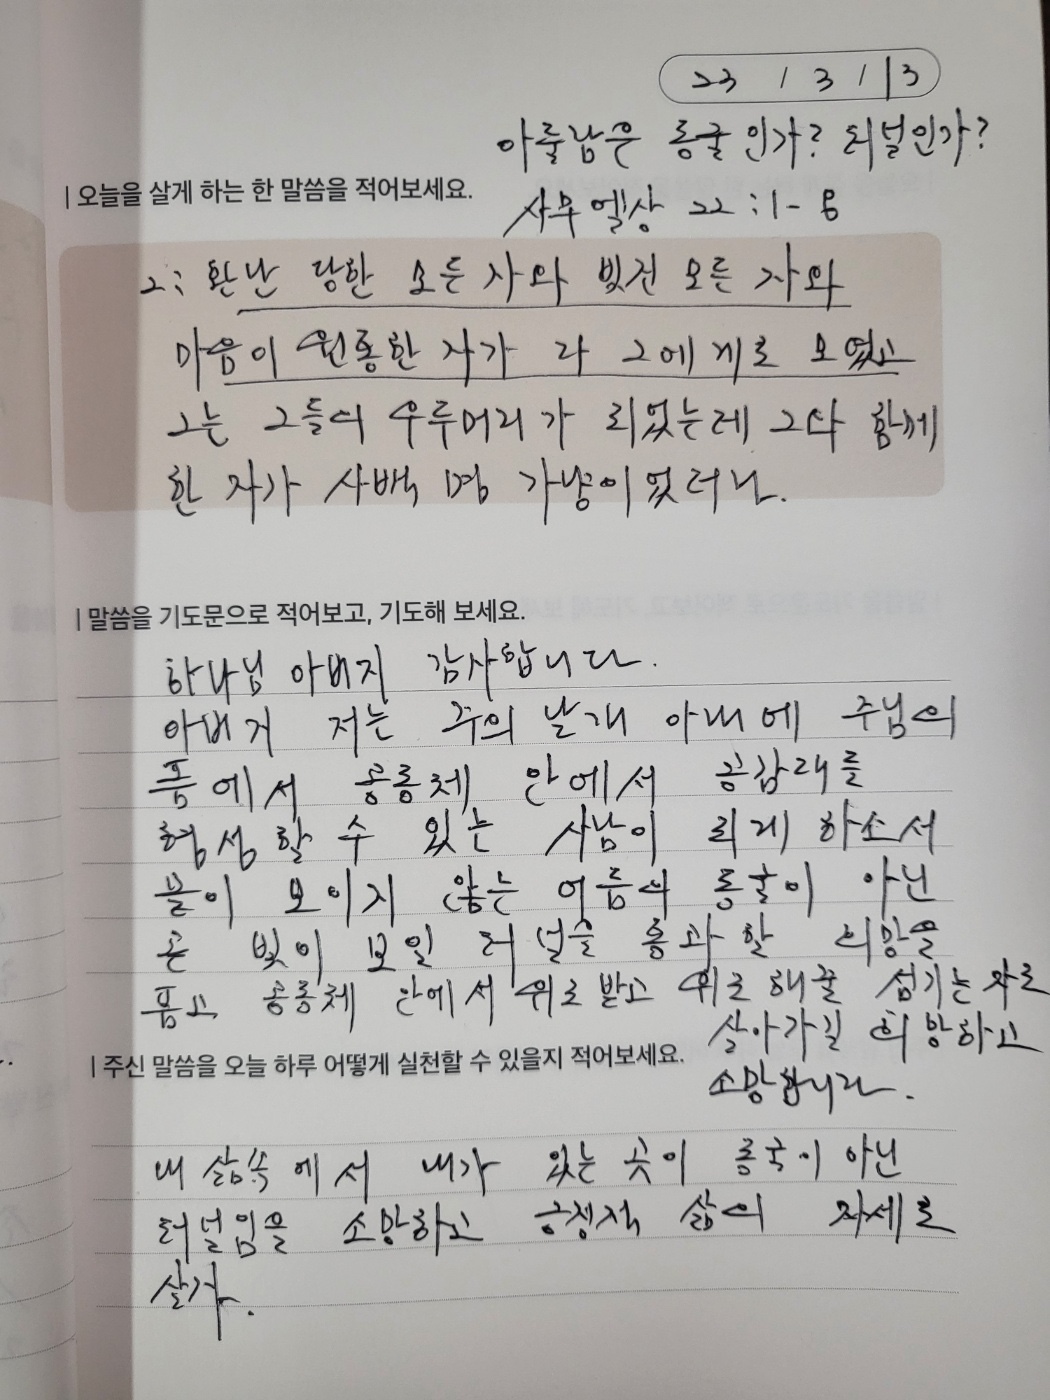 23 / 3 / 13
아둘람은 동굴인가? 터널인가?
| 오늘을 살게 하는 한 말씀을 적어보세요.
사무엘상 22 : 1 - 8
2 : 환난 당한 모든 자와 빚진 모든 자와
마음이 원통한 자가 다 그에게로 모였고
그는 그들의 우두머리가 되었는데 그와 함께
한 자가 사백 명 가량이었더라.
| 말씀을 기도문으로 적어보고, 기도해 보세요.
하나님 아버지 감사합니다.
아버지 저는 주의 날개 아래에 주님의
품에서 공동체 안에서 공감대를
형성할 수 있는 사람이 되게 하소서
불이 보이지 않는 어둠의 동굴이 아닌
곧 빛이 보일 터널을 통과할 희망을
품고 공동체 안에서 위로 받고 위로해줄 섬기는 자로
살아가길 희망하고
소망합니다.
| 주신 말씀을 오늘 하루 어떻게 실천할 수 있을지 적어보세요.
내 삶속에서 내가 있는 곳이 동굴이 아닌
터널임을 소망하고 긍정적 삶의 자세로
살자.